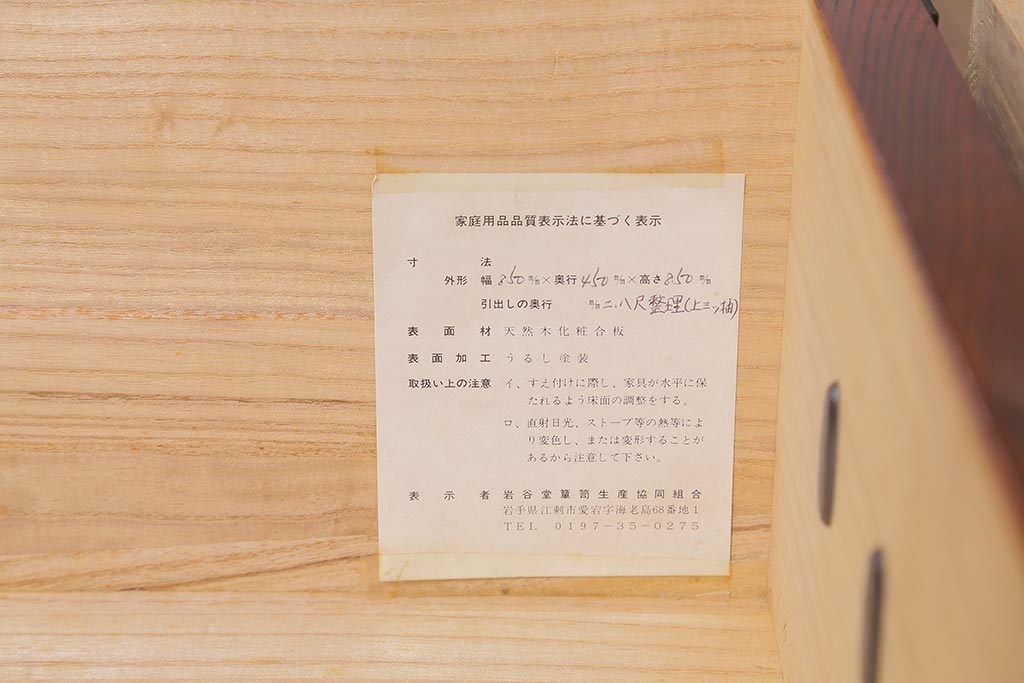 家庭用品品質表示法に基づく表示
寸法
外形 幅 850 m/m × 奥行 450 m/m × 高さ 850 m/m
引出しの奥行 m/m 二.八尺整理(上三ッ抽)
表面材 天然木化粧合板
表面加工 うるし塗装
取扱い上の注意 イ、すえ付けに際し、家具が水平に保
たれるよう床面の調整をする。
ロ、直射日光、ストーブ等の熱等によ
り変色し、または変形することが
あるから注意して下さい。
表示者 岩谷堂簞笥生産協同組合
岩手県江刺市愛宕字海老島68番地1
TEL 0197-35-0275